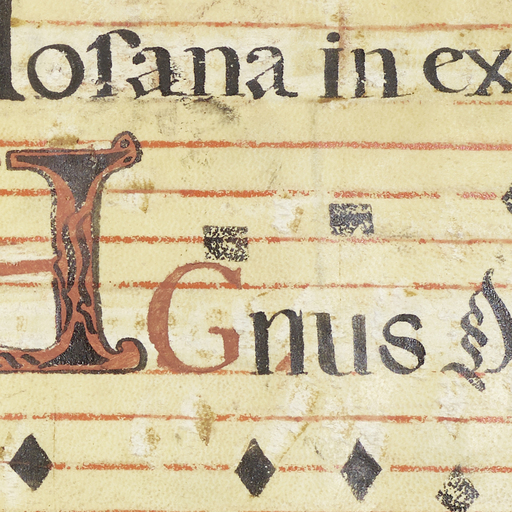 oſana in ex
Gnus